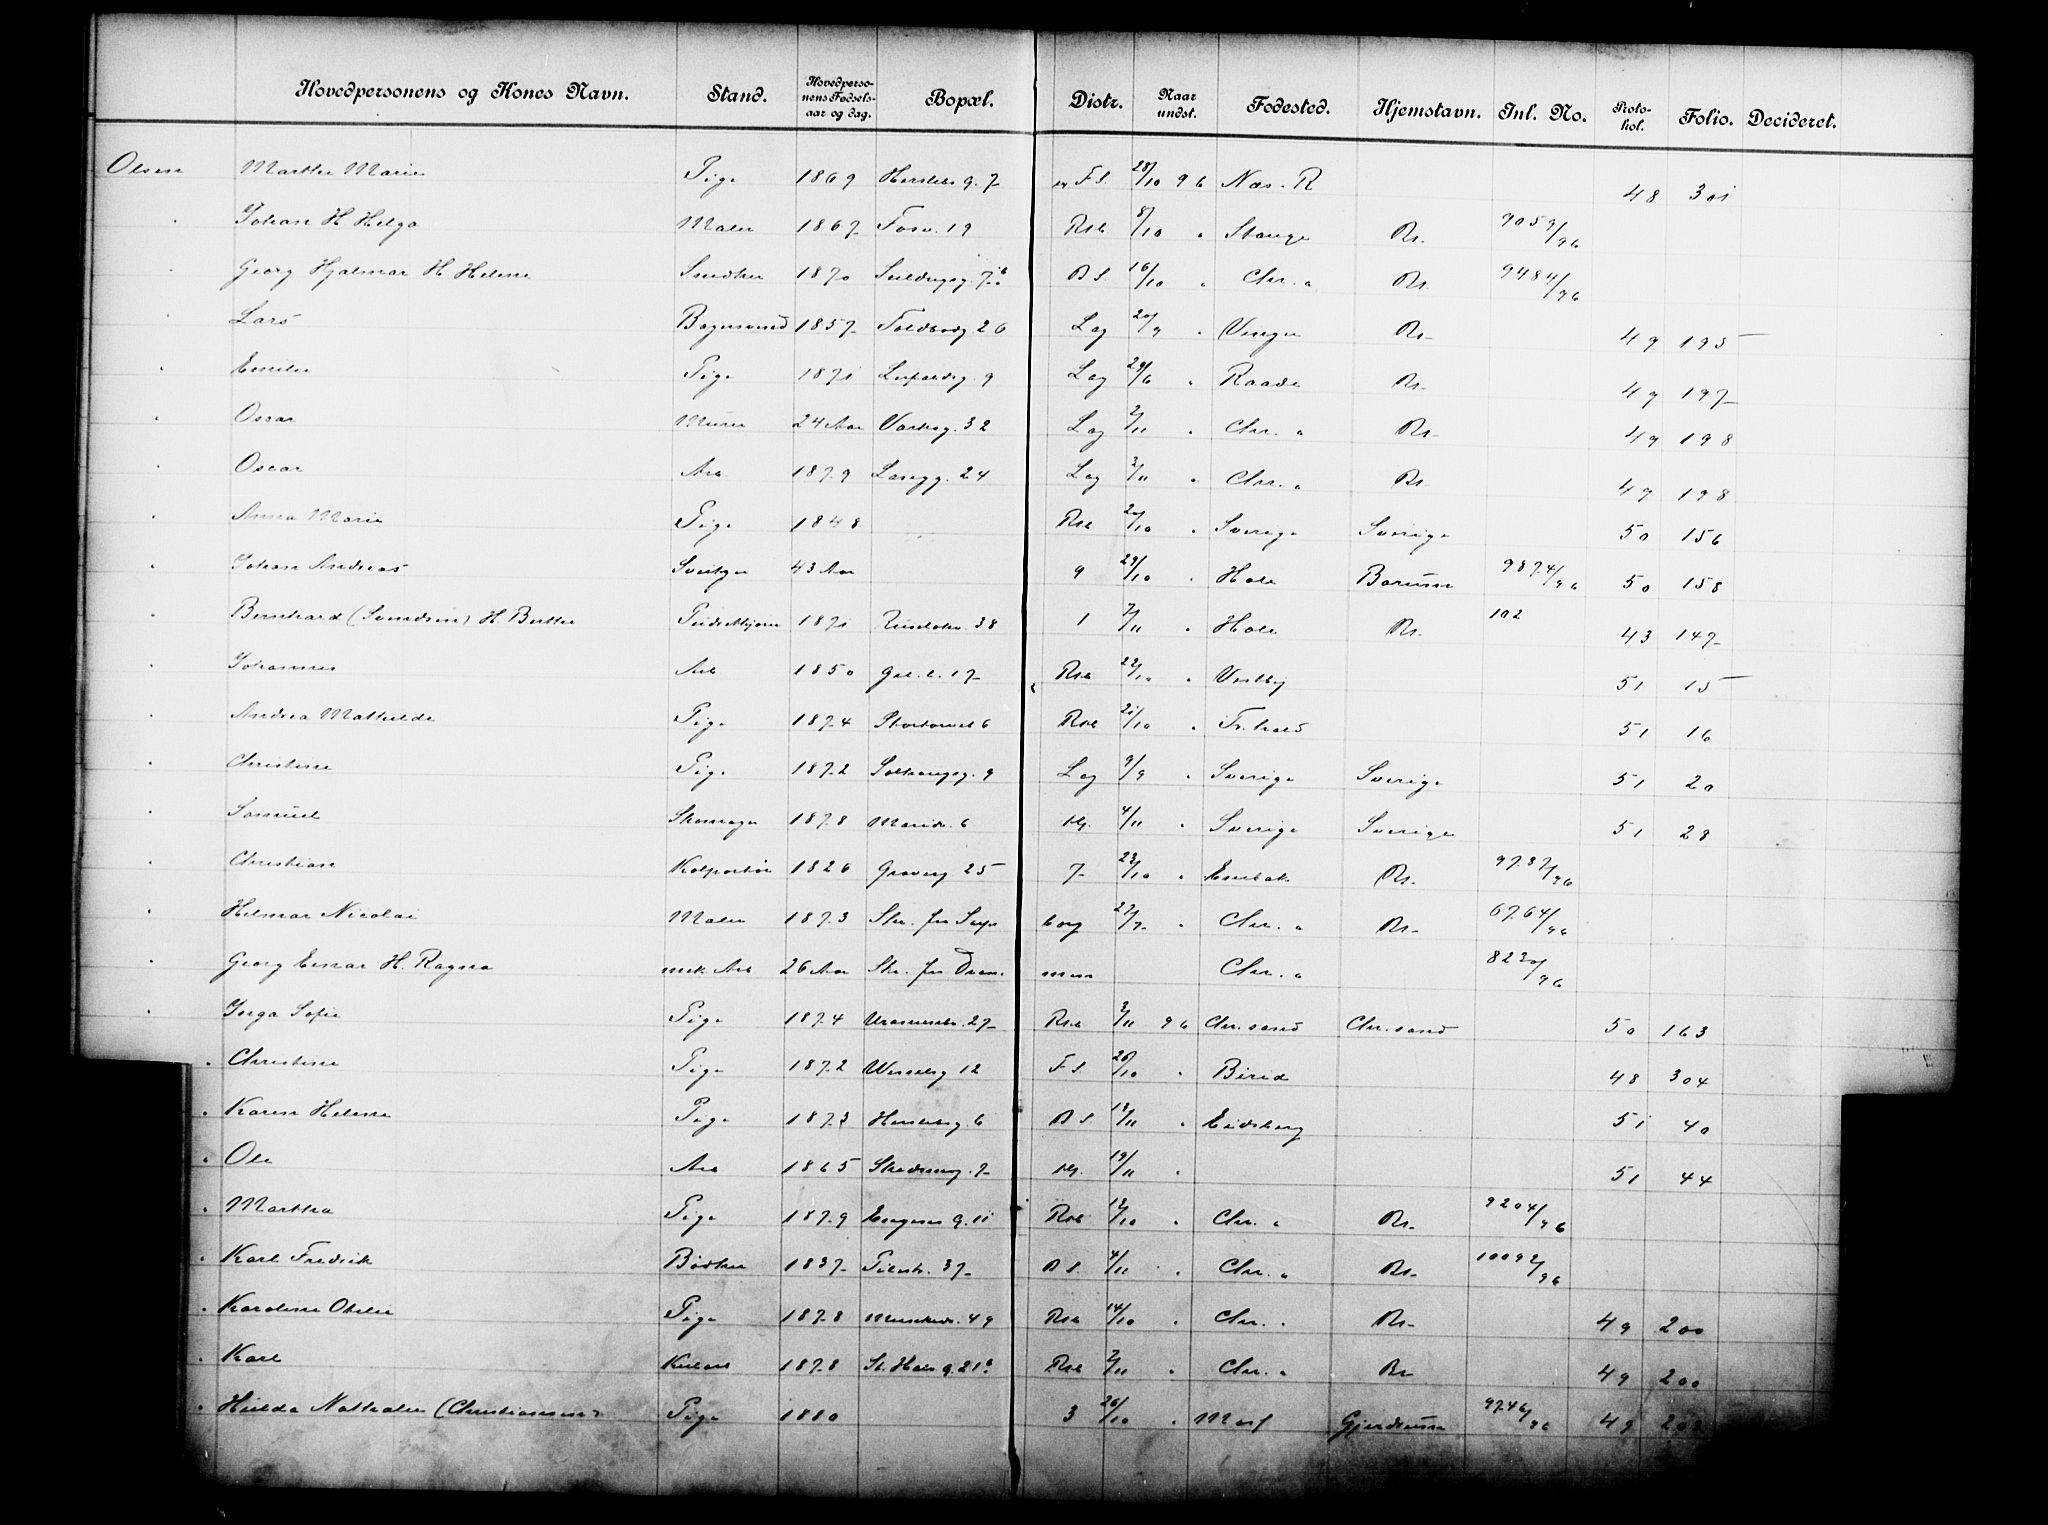 Hovedpersonens og Kones Navn. Stand. Hovedperso-nens Fødsels-aar og dag. Bopæl. Distr. Naar undst. Fødested. Hjemstavn. Inl. No. Proto-kol. Folio. Decideret.
Olsen Marthe Marie Pige 1869 Herslebs g. 7 F S. 28/10 96 Næs. R 48 301
" Johan H Helga Maler 1867 Fosv. 19 Rsb 8/10 " Stange Kr. 9059/96
" Georg Hjalmar H Helene Snedker 1870 B S. 16/10 " Chr. a Kr. 9484/96
" Lars Bogersvend 1857 Toldbodg 26 Lag 20/9 " Vinger Kr. 49 195
" Emilie Pige 1871 9 Lag 29/6 " Raade Kr. 49 197
" Oscar Murer 24 Aar Vaksg. 32 Lag 2/11 " Chr. a Kr. 49 198
" Oscar Arb 1879 Langg. 24 Lag 3/11 " Chr. a Kr. 49 198
" Anna Marie Pige 1848 Rsb 20/10 " Sverige Sverige 50 156
" Johan Andreas 43 Aar 9 29/10 " Hole Barum 9874/96 50 158
" Bernhard (Svendsen) H. Berthe 1871 Ruselökv. 38 1 7/11 " Hole Kr. 102 43 147
" Johannes Arb 1850 Gsl. l. 17 Rsb 22/10 " Vestby 51 15
" Andrea Mathilde Pige 1874 Stortorvet 6 Rsb 21/10 " Fr. hald 51 16
" Christine Pige 1872 9 Lag 9/9 " Sverige Sverige 51 20
" Samuel Skomager 1878 Marids. 6 Kg. 4/11 " Sverige Sverige 51 28
" Christian Kolportør 1826 Graverg 25 7 23/10 " Enebak Kr. 9787/96
" Hilmar Nicolai Maler 1873 Skr. fra Sarps borg 27/7 " Chr. a Kr. 6764/96
" Georg Einar H. Ragna mek. Arb 26 Aar Skr. fra Dram. men Chr. a 8230/96
" Inga Sofie Pige 1874 Uranienbs. 27 Rsb 3/11 96 Chr.sand Chr.sand 50 163
" Christine Pige 1872 Wesselsg 12 F S. 20/10 " Birid 48 304
" Karen Helene Pige 1873 Herslebsg. 6 B S. 12/11 " Eidsberg 51 40
" Ole Arb 1865 7 Kg. 19/11 " 51 44
" Martha Pige 1879 Engens g. 11 Rsb 12/10 " Chr. a Kr. 9204/96
" Karl Fredrik Bødker 1837 Pilestr. 37 B S. 4/11 " Chr. a Kr. 10092/96
" Karoline Otelie Pige 1878 Munkeds. 49 Rsb 14/10 " Chr. " Kr. 49 200
" Karl 1878 St. Hals g. 21b Rsb 2/11 " Chr. a Kr 49 200
" Hilda Nathalie (Christiansen) Pige 1880 3 26/10 " Gjerdrum 9746/96 49 202